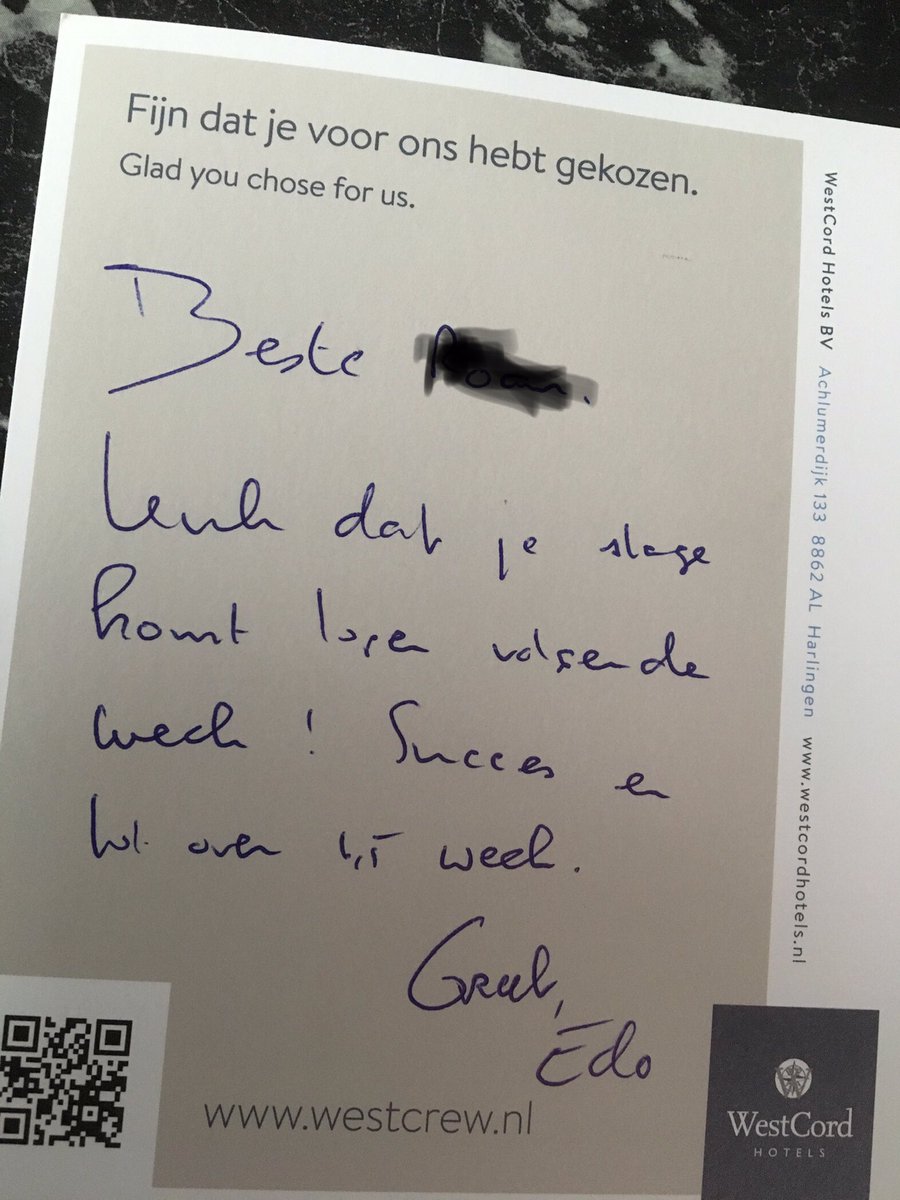 Fijn dat je voor ons hebt gekozen.
Glad you chose for us.
Beste
Leuk dat je stage
komt lopen volgende
week! Succes en
tot over 1,5 week.
Groet,
Edo
www.westcrew.nl
WestCord
HOTELS
WestCord Hotels BV Achlumerdijk 133 8862 AL Harlingen www.westcordhotels.nl